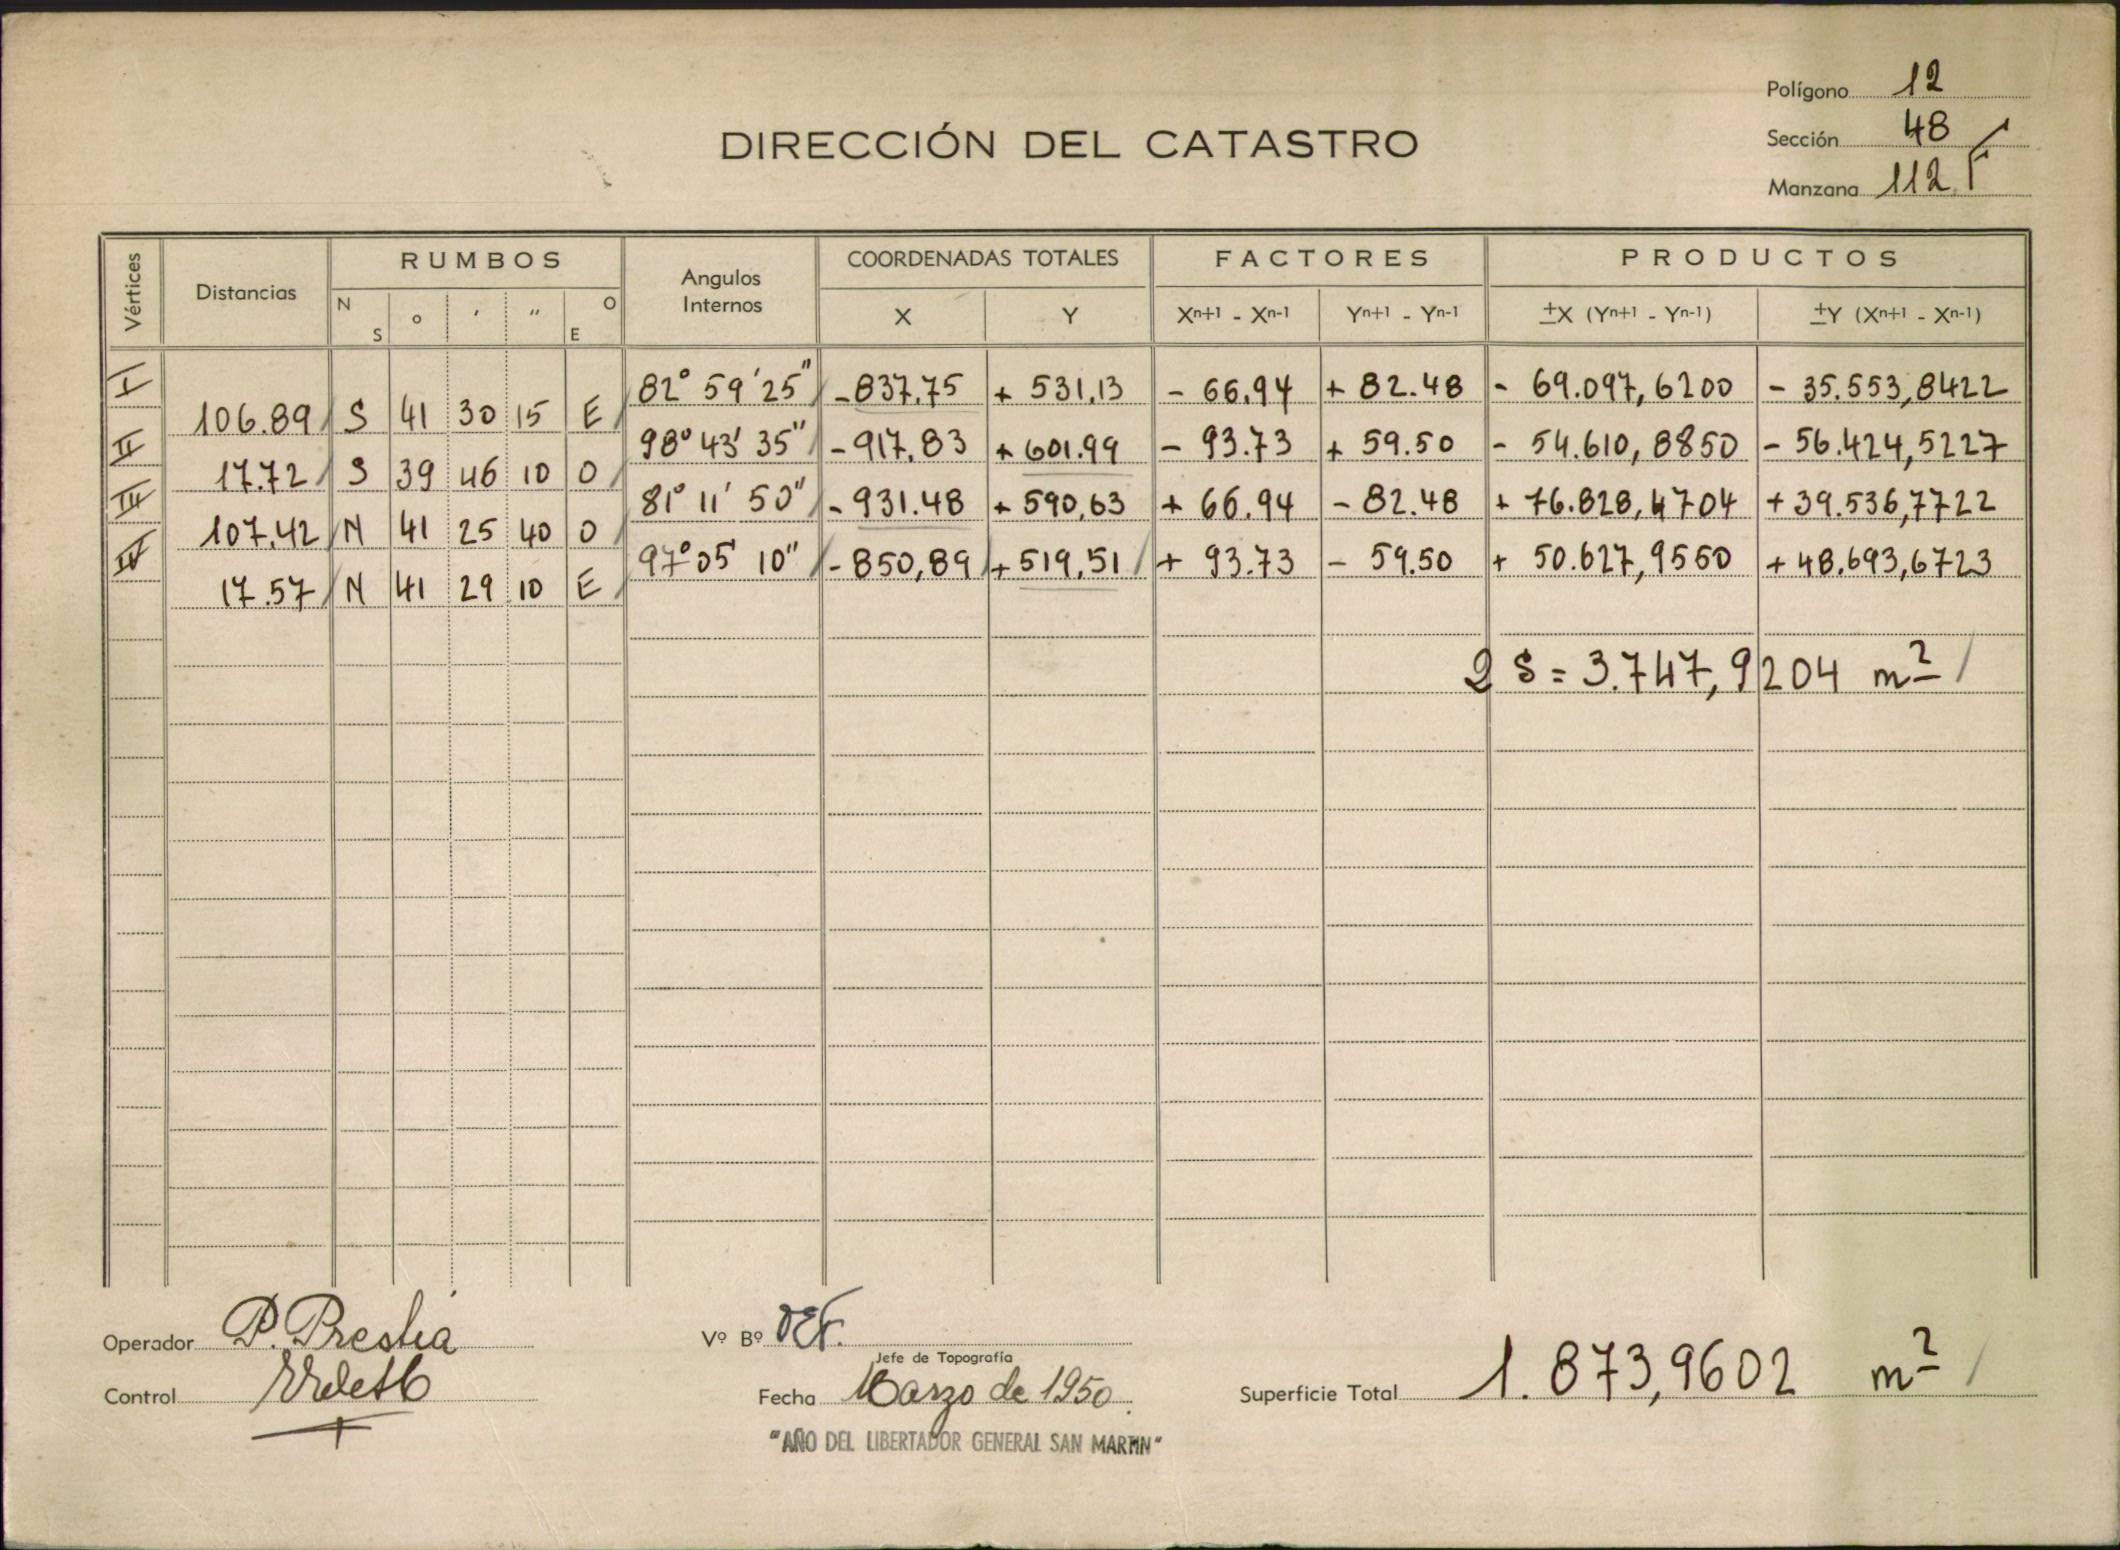 Polígono 12
DIRECCIÓN DEL CATASTRO
Sección 48
Manzana 112
Vértices Distancias RUMBOS Angulos Internos COORDENADAS TOTALES FACTORES PRODUCTOS
N S ° ' " O E X Y Xn+1 - Xn-1 Yn+1 - Yn-1 ±X (Yn+1 - Yn-1) ±Y (Xn+1 - Xn-1)
I 82° 59' 25" -837,75 + 531,13 - 66,94 + 82.48 - 69.097,6200 - 35.553,8422
106.89 S 41 30 15 E
II 98° 43' 35" -917,83 + 601.99 - 93.73 + 59.50 - 54.610,8850 - 56.424,5227
17.72 S 39 46 10 O
III 81° 11' 50" - 931.48 + 590,63 + 66.94 - 82.48 + 76.828,4704 + 39.536,7722
107,42 N 41 25 40 O
IV 97° 05' 10" - 850,89 + 519,51 + 93.73 - 59.50 + 50.627,9550 + 48.693,6723
17.57 N 41 29 10 E
2 S = 3.747,9204 m2
Operador P. Prestia
Vº Bº
Jefe de Topografía
Control
Fecha Marzo de 1950.
Superficie Total 1.873,9602 m2
"AÑO DEL LIBERTADOR GENERAL SAN MARTIN"